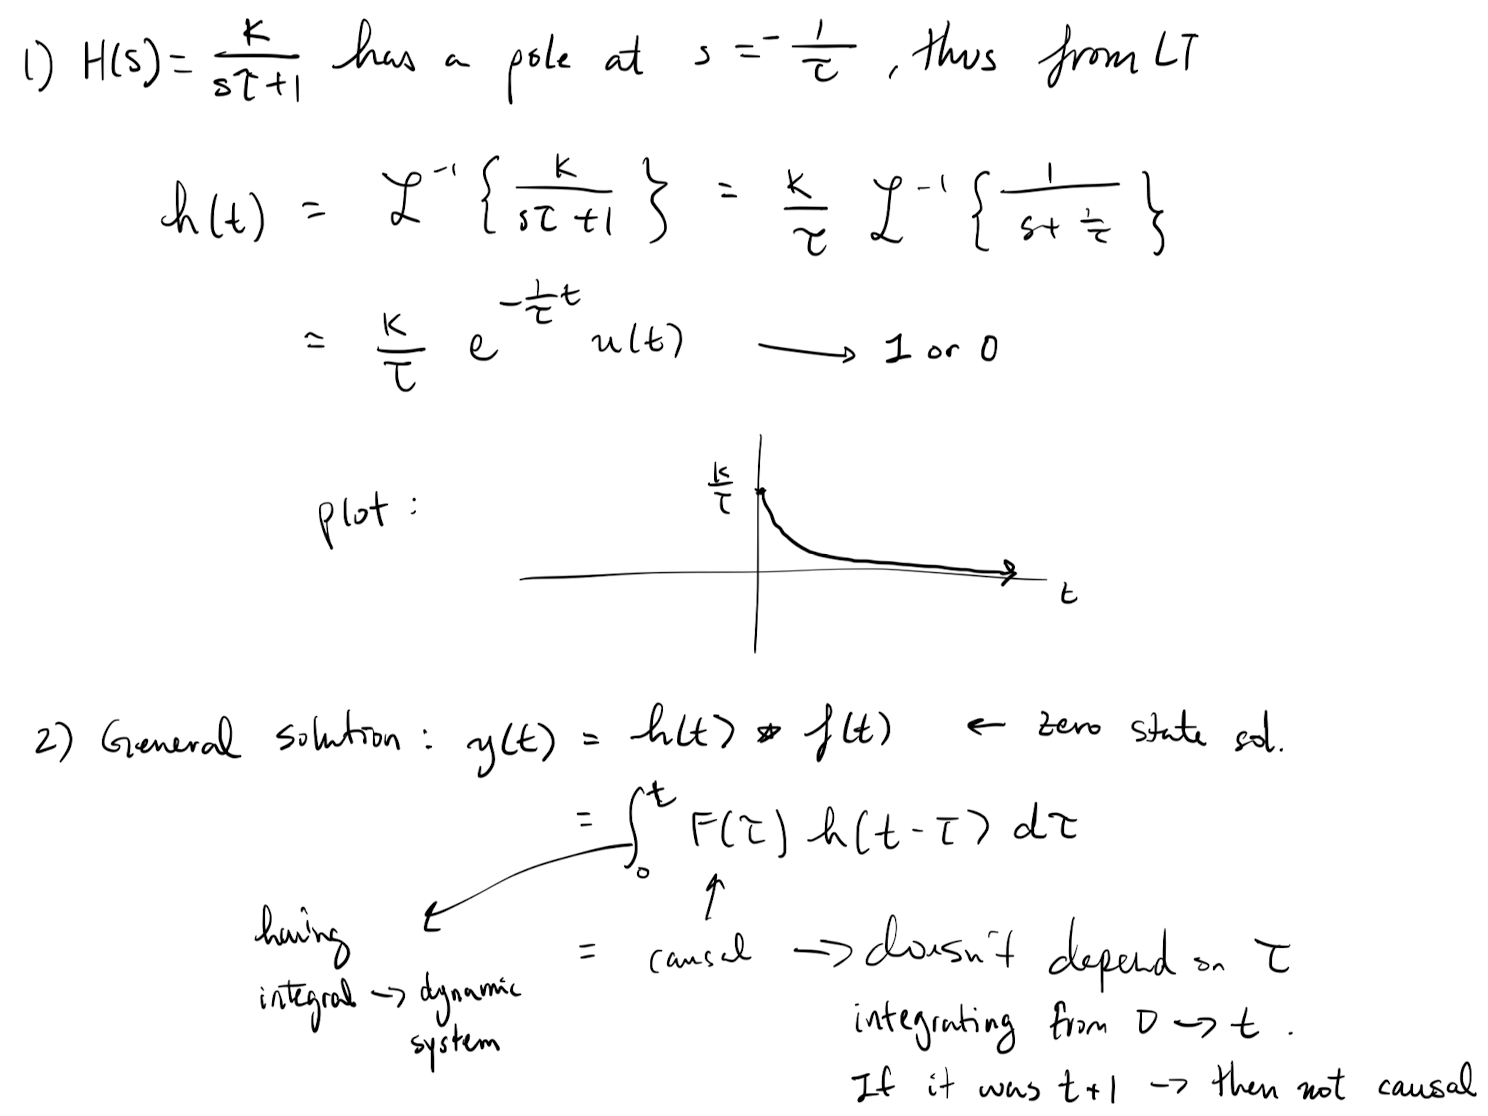 1) H(s) = K/(sτ+1) has a pole at s = -1/τ, thus from LT
h(t) = ℒ⁻¹{K/(sτ+1)} = K/τ ℒ⁻¹{1/(s+1/τ)}
= K/τ e^(-1/τ t) u(t) → 1 or 0
plot:
K/τ
t
2) General solution: y(t) = h(t) * f(t) ← zero state sol.
= ∫₀ᵗ F(τ) h(t-τ) dτ
having
integral → dynamic
system
= causal → doesn't depend on τ
integrating from 0 → t.
If it was t+1 → then not causal